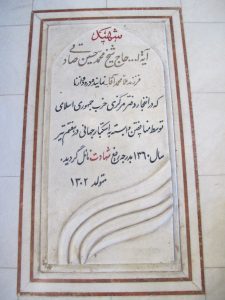 شهید
آیة ا... حاج شیخ محمد حسین صادقی
فرزند ملا محمد آقا نماینده مردم
که در انفجار دفتر مرکزی حزب جمهوری اسلامی
توسط منافقین وابسته به استکبار جهانی در هفتم تیر
سال ۱۳۶۰ بدرجه رفیع شهادت نائل گردید.
متولد ۱۳۰۲